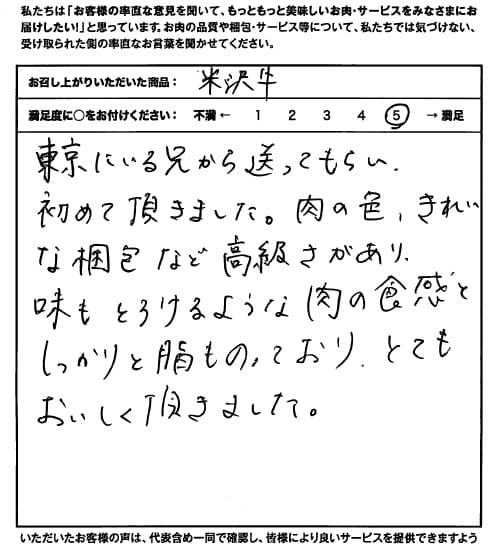 私たちは「お客様の率直な意見を聞いて、もっともっと美味しいお肉・サービスをみなさまにお
届けしたい!」と思っています。お肉の品質や梱包・サービス等について、私たちでは気づけない、
受け取られた側の率直なお言葉を聞かせてください。
お召し上がりいただいた商品： 米沢牛
満足度に〇をお付けください： 不満 ← 1 2 3 4 5 → 満足
東京にいる兄から送ってもらい、
初めて頂きました。肉の色、きれい
な梱包など高級さがあり、
味もとろけるような肉の食感と
しっかりと脂ものっており、とても
おいしく頂きました。
いただいたお客様の声は、代表含め一同で確認し、皆様により良いサービスを提供できますよう